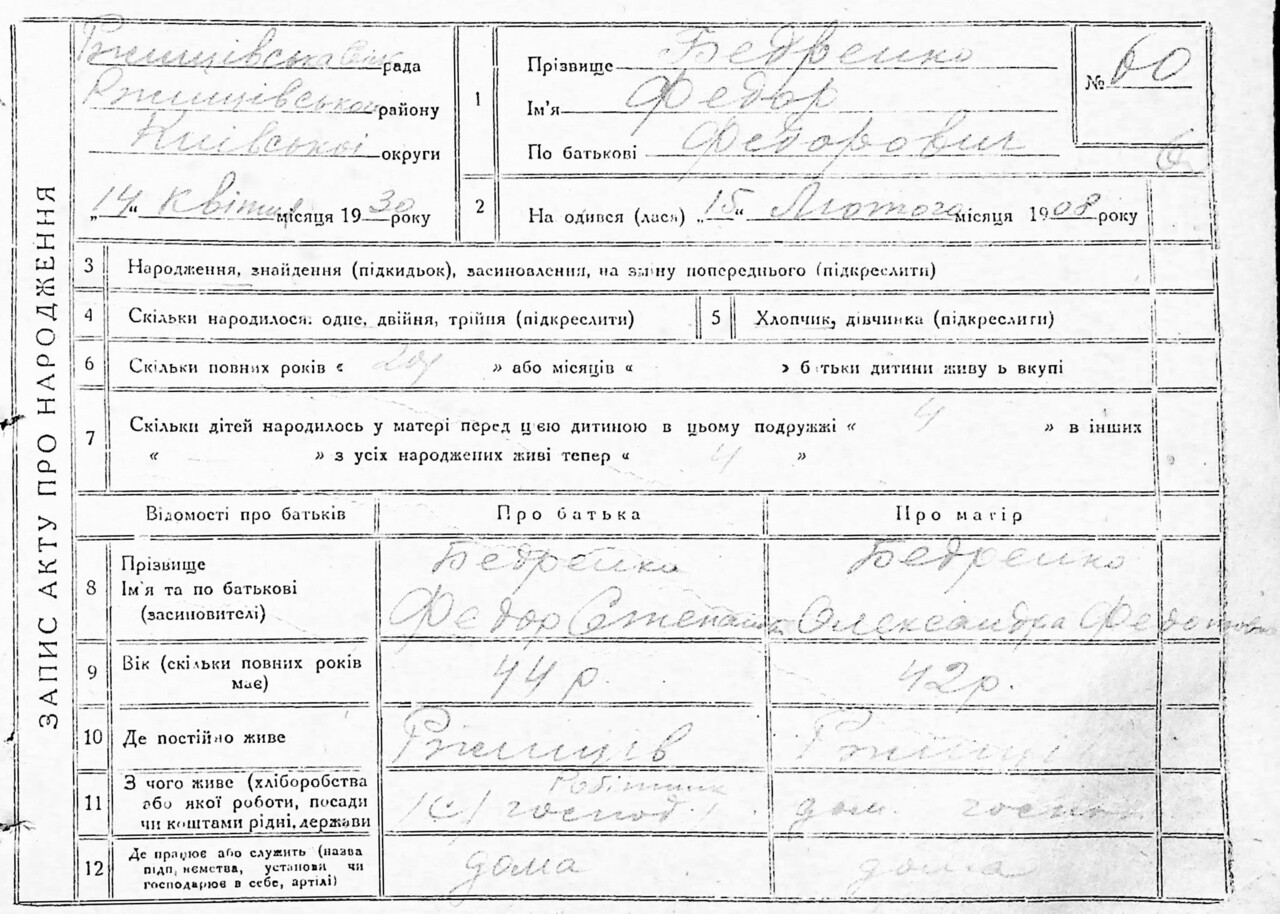 ЗАПИС АКТУ ПРО НАРОДЖЕННЯ
Ржищівська рада
Ржищівського району
Київської округи
„14" Квітня місяця 1930 року
1
Прізвище Бедрейко
Ім'я Федор
По батькові Федорович
№ 60
2
На одився (лася) „15" Лютого місяця 1908 року
3 Народження, знайдення (підкидьок), засиновлення, на зміну попереднього (підкреслити)
4 Скільки народилося: одне, двійня, трійня (підкреслити)
5 Хлопчик, дівчинка (підкреслити)
6 Скільки повних років « » або місяців « » батьки дитини живуть вкупі
7 Скільки дітей народилось у матері перед цією дитиною в цьому подружжі « 4 » в інших
« » з усіх народжених живі тепер « 4 »
Відомості про батьків Про батька Про матір
8 Прізвище
Ім'я та по батькові
(засиновителі)
Бедрейко
Федор Степанів
Бедрейко
Олександра Федотовна
9 Вік (скільки повних років
має)
44 р. 42 р.
10 Де постійно живе Ржищів Ржищів
11 З чого живе (хліборобства
або якої роботи, посади
чи коштами рідні, держави
Робітник
(с) господ
дом. господ
12 Де працює або служить (назва
підприємства, установи чи
господарює в себе, артілі)
дома дома